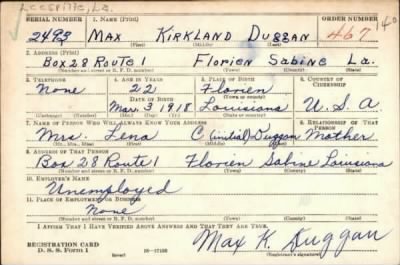 Leesville, La.
SERIAL NUMBER 1. NAME (Print) ORDER NUMBER
2483 MAX KIRKLAND DUGGAN 467
(First) (Middle) (Last)
2. ADDRESS (Print)
BOX 28 ROUTE 1 FLORIEN SABINE LA.
(Number and street or R. F. D. number) (Town) (County) (State)
3. TELEPHONE 4. AGE IN YEARS 5. PLACE OF BIRTH 6. COUNTRY OF CITIZENSHIP
None 22 Florien
DATE OF BIRTH
Mar. 3 1918 Louisiana U. S. A
(Exchange) (Number) (Mo.) (Day) (Yr.) (State or country)
7. NAME OF PERSON WHO WILL ALWAYS KNOW YOUR ADDRESS 8. RELATIONSHIP OF THAT PERSON
Mrs. Lena C (initial) Duggan Mother
(Mr., Mrs., Miss) (First) (Middle) (Last)
9. ADDRESS OF THAT PERSON
Box 28 Route 1 Florien Sabine Louisiana
(Number and street or R. F. D. number) (Town) (County) (State)
10. EMPLOYER'S NAME
Unemployed
11. PLACE OF EMPLOYMENT OR BUSINESS
None
(Number and street or R. F. D. number) (Town) (County) (State)
I AFFIRM THAT I HAVE VERIFIED ABOVE ANSWERS AND THAT THEY ARE TRUE.
REGISTRATION CARD
D. S. S. Form 1 16—17105 Max K. Duggan
(Registrant's signature)